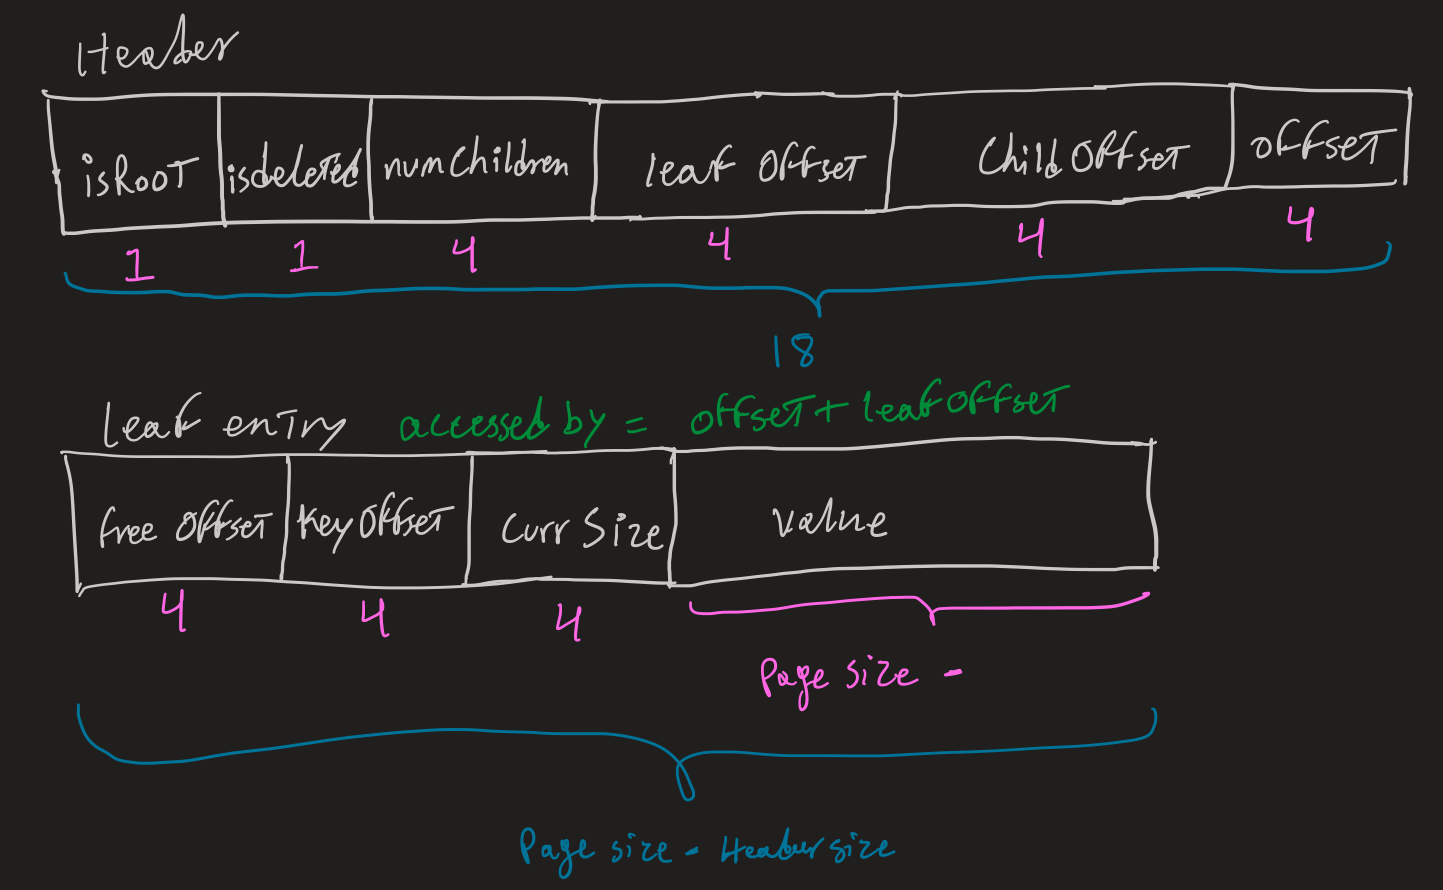 Header
isRoot isdeleted numChildren leaf offset Child Offset offset
1 1 4 4 4 4
18
leaf entry accessed by = offset + leafoffset
free offset Key Offset Curr Size Value
4 4 4
Page size -
Page size - Header size